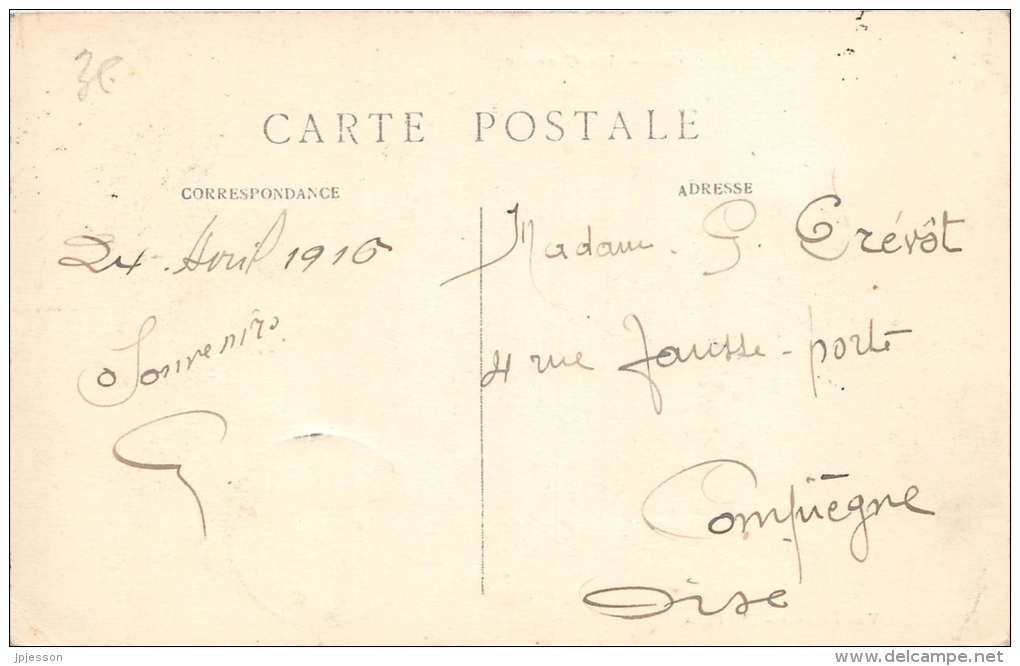 3€
CARTE POSTALE
CORRESPONDANCE
24 Avril 1916
Souvenirs
G
ADRESSE
Madame G. Trévôt
4 rue fausse-porte
Compiègne
Oise
jpjesson
www.delcampe.net